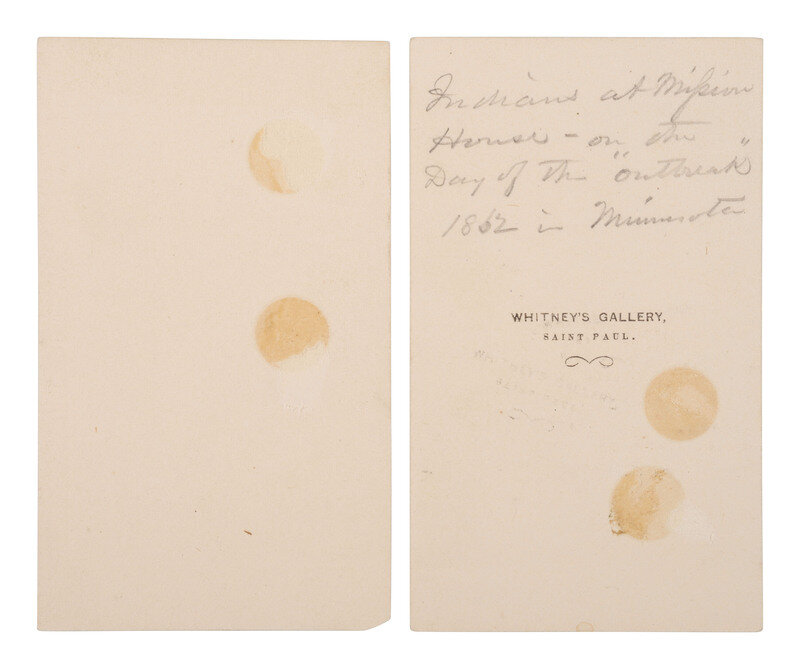 Indians at Mission
House - on the
Day of the "Outbreak"
1862 in Minnesota
WHITNEY'S GALLERY,
SAINT PAUL.